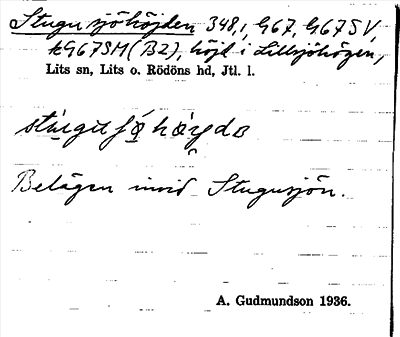 Stugusjöhöjden 348,1, G67, G67SV,
kG67SM (B2), höjd i Lillsjöhögen,
Lits sn, Lits o. Rödöns hd, Jtl. l.
Belägen invid Stugusjön.
A. Gudmundson 1936.